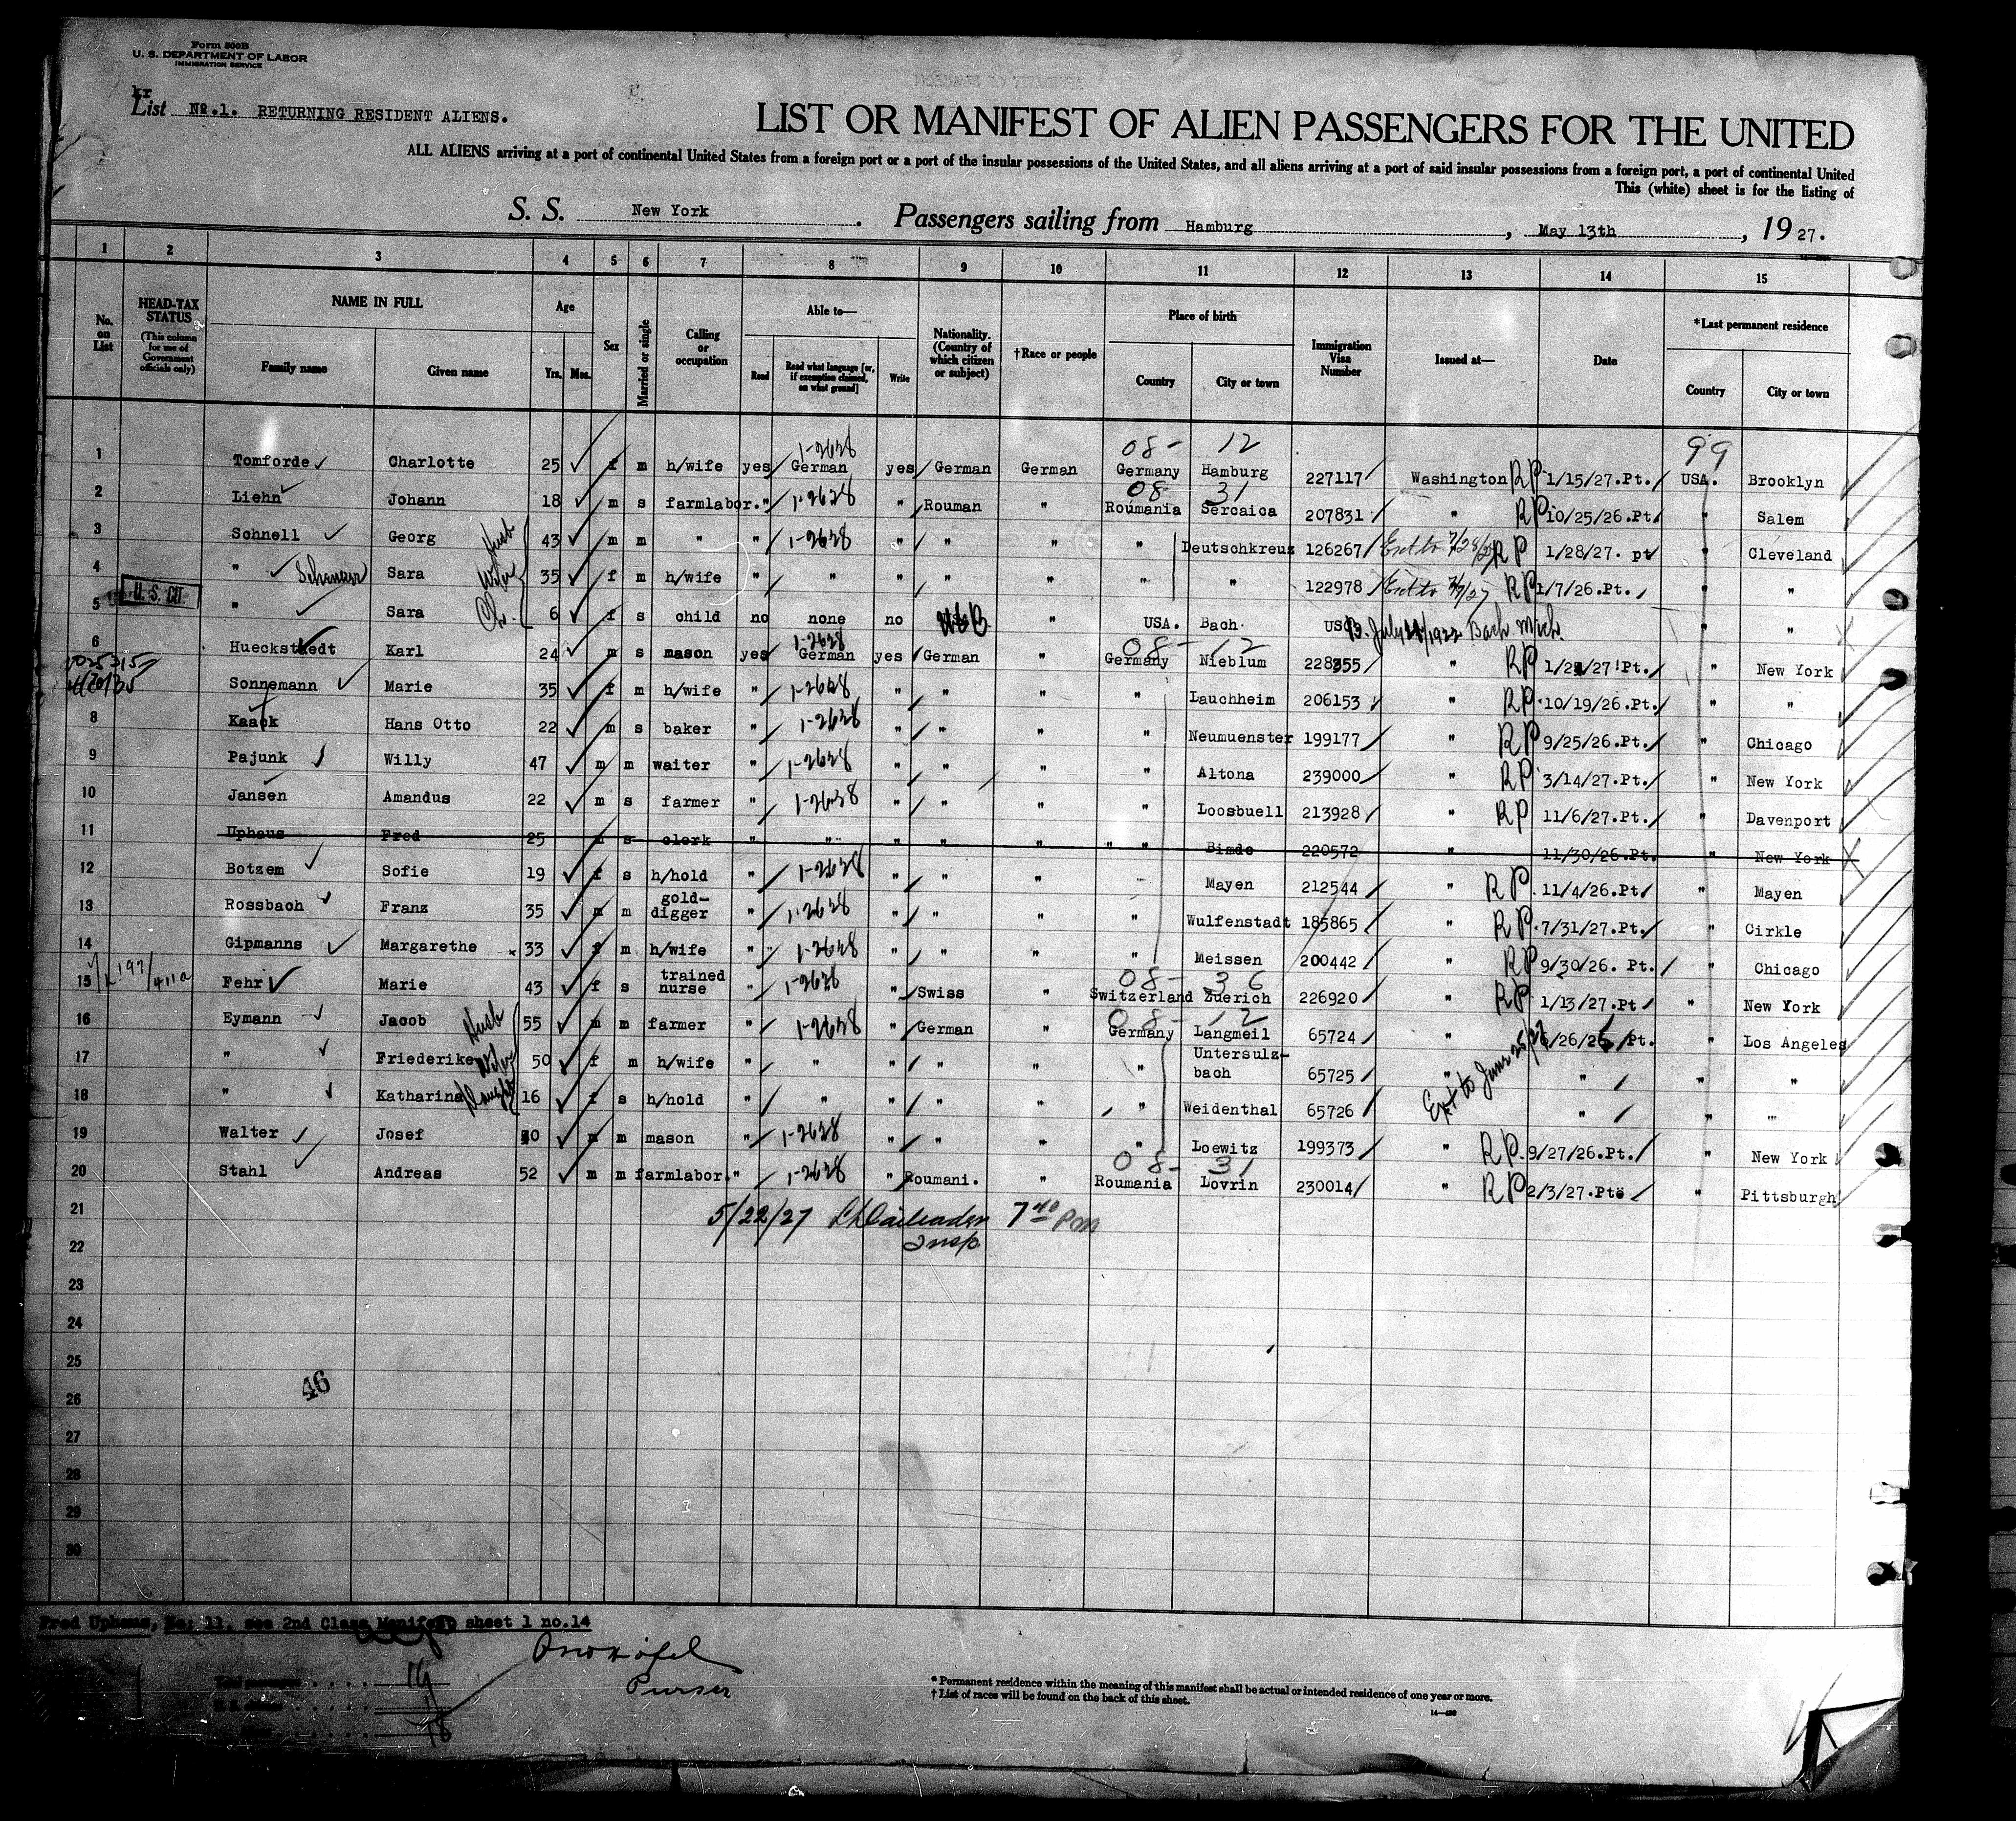 Form 500B
U. S. DEPARTMENT OF LABOR
IMMIGRATION SERVICE
kr
List No.1. RETURNING RESIDENT ALIENS.
LIST OR MANIFEST OF ALIEN PASSENGERS FOR THE UNITED
ALL ALIENS arriving at a port of continental United States from a foreign port or a port of the insular possessions of the United States, and all aliens arriving at a port of said insular possessions from a foreign port, a port of continental United
This (white) sheet is for the listing of
S. S. New York . Passengers sailing from Hamburg , May 13th , 1927.
1 2 3 4 5 6 7 8 9 10 11 12 13 14 15
No. on List
HEAD-TAX STATUS (This column for use of Government officials only)
NAME IN FULL Family name Given name
Age Yrs. Mos.
Sex
Married or single
Calling or occupation
Able to— Read Read what language [or, if exemption claimed, on what ground] Write
Nationality. (Country of which citizen or subject)
†Race or people
Place of birth Country City or town
Immigration Visa Number
Issued at—
Date
*Last permanent residence Country City or town
1-2628 08- 12 99
1 Tomforde Charlotte 25 f m h/wife yes German yes German German Germany Hamburg 227117 Washington RP 1/15/27.Pt. USA. Brooklyn
08- 31
2 Liehn Johann 18 m s farmlabor. " 1-2628 " Rouman " Roumania Sercaica 207831 " RP 10/25/26.Pt. " Salem
3 Schnell Georg Husb 43 m m " " 1-2628 " " " " Deutschkreuz 126267 Ext to 7/28/27 RP 1/28/27. pt " Cleveland
4 " Schenker Sara Wife 35 f m h/wife " " " " " " " 122978 Ext to RP 1/7/26.Pt. " "
U. S. CIT.
5 " Sara Ch. 6 f s child no none no USB " USA. Bach US B. July /1922 Bach Mich. " "
1-2628 08- 12
6 Hueckstaedt Karl 24 m s mason yes German yes German " Germany Nieblum 228355 " RP 1/21/27.Pt. " New York
Sonnemann Marie 35 f m h/wife " 1-2628 " " " " Lauchheim 206153 " RP 10/19/26.Pt. " "
8 Kaack Hans Otto 22 m s baker " 1-2628 " " " " Neumuenster 199177 " RP 9/25/26.Pt. " Chicago
9 Pajunk Willy 47 m m waiter " 1-2628 " " " " Altona 239000 " RP 3/14/27.Pt. " New York
10 Jansen Amandus 22 m s farmer " 1-2628 " " " " Loosbuell 213928 " RP 11/6/27.Pt. " Davenport
11 Uphaus Fred 25 m s clerk " " " " " " Bimde 220572 " 11/30/26.Pt. " New York
12 Botzem Sofie 19 f s h/hold " 1-2628 " " " " Mayen 212544 " RP 11/4/26.Pt " Mayen
13 Rossbach Franz 35 m m gold-digger " 1-2628 " " " " Wulfenstadt 185865 " RP 7/31/27.Pt. " Cirkle
14 Gipmanns Margarethe 33 f m h/wife " 1-2628 " " " " Meissen 200442 " RP 9/30/26. Pt. " Chicago
08- 36
15 Fehr Marie 43 f s trained nurse " 1-2628 " Swiss " Switzerland Zuerich 226920 " RP 1/13/27.Pt " New York
08- 12
16 Eymann Jacob Husb 55 m m farmer " 1-2628 " German " Germany Langmeil 65724 Ext to June 25/27 6/26/26/Pt. " Los Angeles
17 " Friederike Wife 50 f m h/wife " " " " " " Untersulz-bach 65725 " " " "
18 " Katharina Daught 16 f s h/hold " " " " " " Weidenthal 65726 " " "
19 Walter Josef 40 m m mason " 1-2628 " " " " Loewitz 199373 " RP 9/27/26.Pt. " New York
08- 31
20 Stahl Andreas 52 m m farmlabor. " 1-2628 " Roumani. " Roumania Lovrin 230014 " RP 2/3/27.Pt. " Pittsburgh
21 5/22/27 7 40 Pm
22 Insp.
23
24
25
26
46
27
28
29
30
Fred Uphaus, No; 11, see 2nd Class Manifest sheet 1 no.14
19
Purser
18
* Permanent residence within the meaning of this manifest shall be actual or intended residence of one year or more.
† List of races will be found on the back of this sheet.